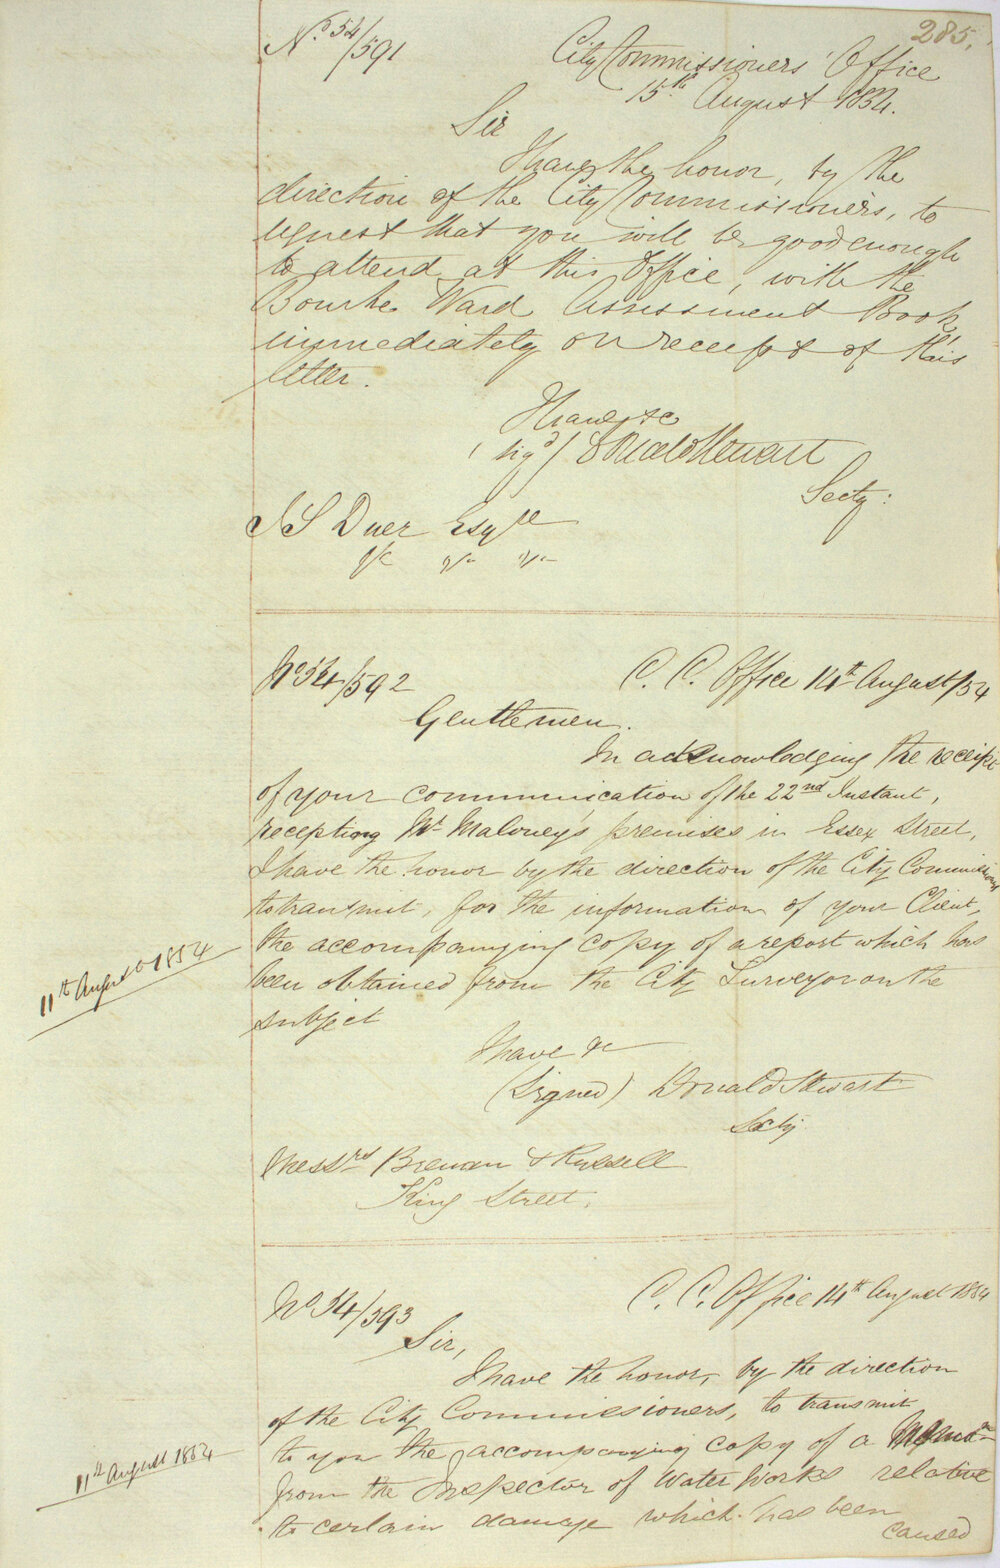 285.
No 54/591
City Commissioners Office
15th August 1854.
Sir
I have the honor, by the
direction of the City Commissioners, to
request that you will be good enough
to attend at this Office, with the
Bourke Ward Assessment Book,
immediately on receipt of this
letter.
I have &c
(sigd) Donald Stewart
Secty:
J S Duer Esqre
&c &c &c
No 54/592
C. C. Office 14th August/54
Gentlemen.
In acknowledging the receipt
of your communication of the 22nd Instant,
respecting Mr Maloney's premises in Essex Street,
I have the honor by the direction of the City Commissioners
to transmit, for the information of your Client,
the accompanying copy of a report which has
11th August 1854
been obtained from the City Surveyor on the
subject
I have &c
(Signed) Donald Stewart
Secty
Messrs Brenan & Russell
King Street.
No 54/593
C. C. Office 14th August 1854
Sir,
I have the honor, by the direction
of the City Commissioners, to transmit
to you the accompanying copy of a
11th August 1854
from the Inspector of Water Works relative
to certain damage which has been
caused